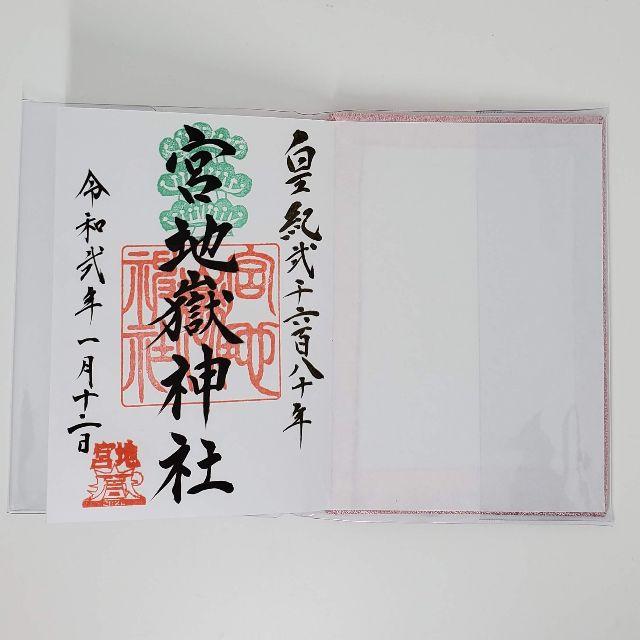 皇紀弐千六百八十年
宮地嶽神社
令和弐年一月十二日
宮地嶽神社
宮地